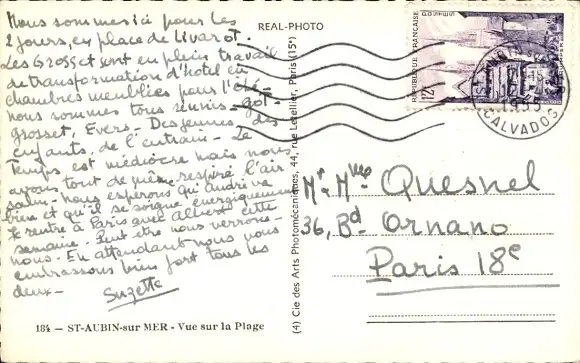 Nous sommes ici pour les
2 jours, en place de Livarot.
Les Grosset sont en plein travail
de transformation d'hôtel en
chambres meublées pour l'été-
nous sommes tous réunis - Gol-
grosset, Evers - Des jeunes, des
enfants, de l'entrain - Le
Temps est médiocre mais nous
avons tout de même respiré l'air
salin - Nous espérons qu'André va
bien et qu'il se soigne énergiquement
Je rentre à Paris avec Albert cette
semaine - Peut être nous verrons-
nous - En attendant nous vous
embrassons bien fort tous les
deux -
Suzette
184 - ST-AUBIN-sur MER - Vue sur la Plage
REAL-PHOTO
(4) Cie des Arts Photomécaniques, 44, rue Letellier, Paris (15e)
POSTES
REPUBLIQUE FRANÇAISE
12f
CALVADOS
Mr. Mme Quesnel
36, Bd Ornano
Paris 18e